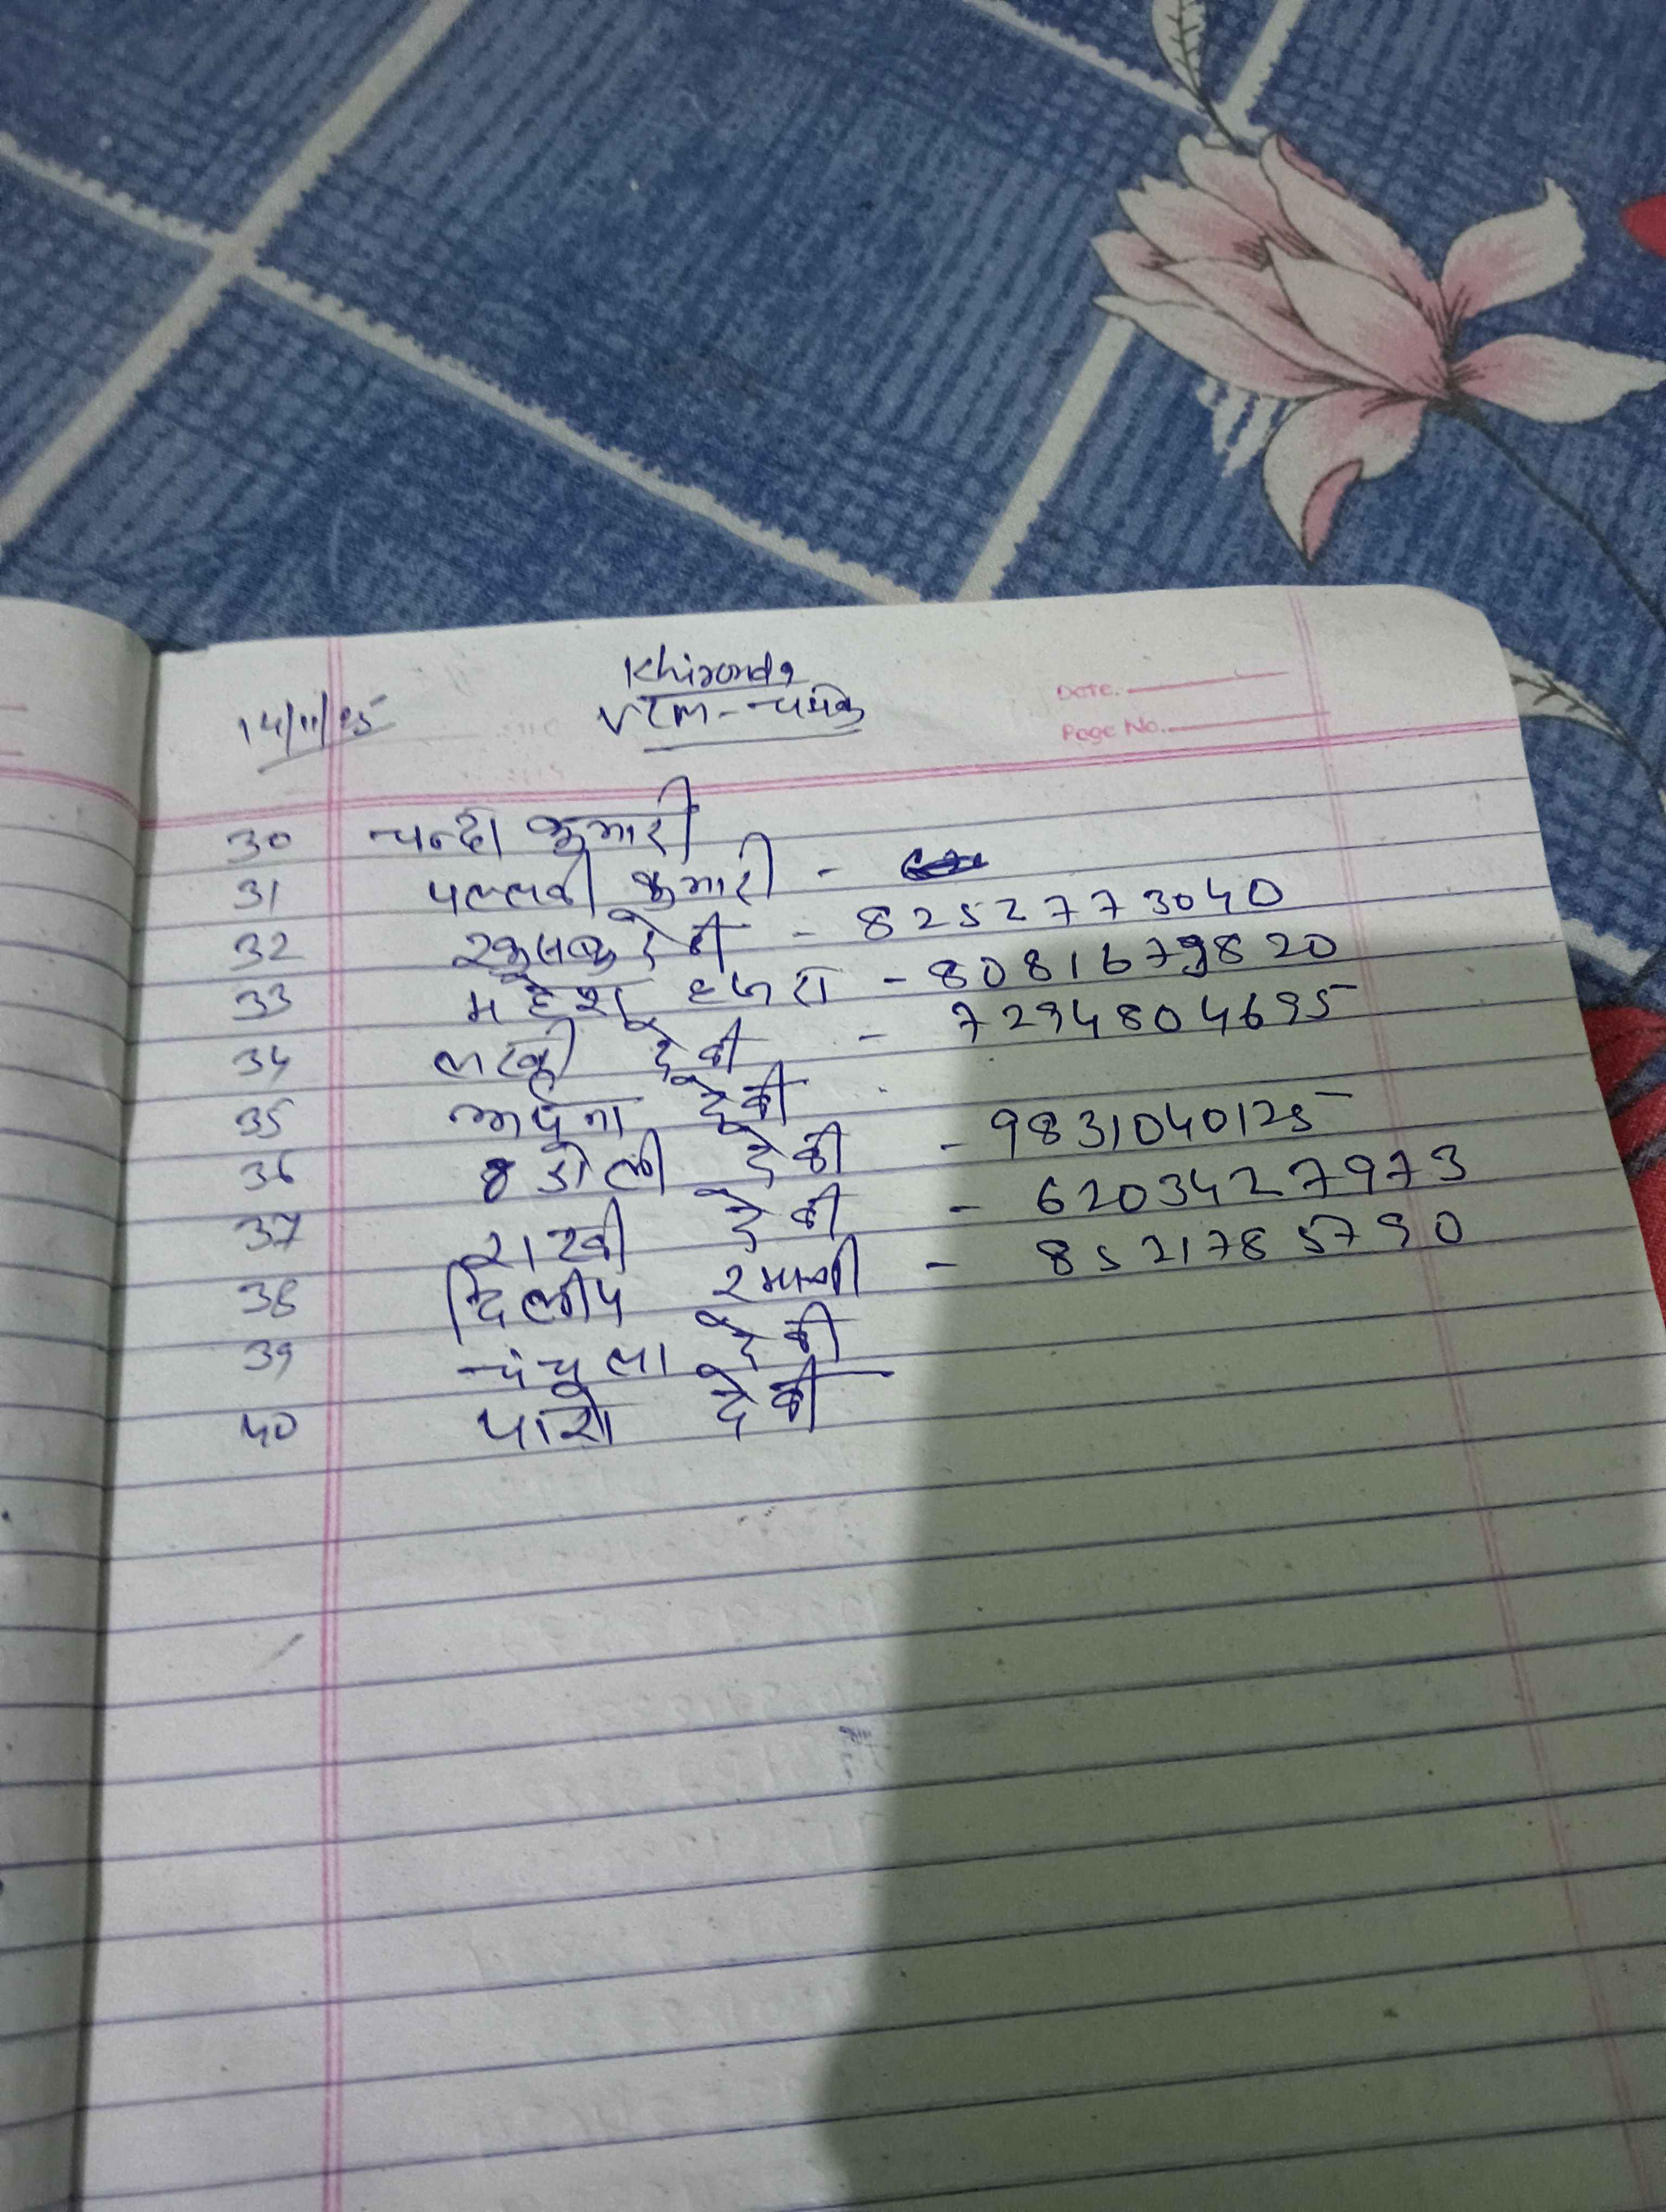 Khironda
14/11/25
VLM-चम्पे
Date.
Page No.
30 चन्दा कुमारी
31 पल्लवी कुमारी -
32 देवी - 8252773040
33 महेश हजरा - 8081679820
34 लखी देवी - 7294804695
35 अपुना देवी
36 डोली देवी - 9831040125
37 राखी देवी - 6203427973
38 दिलीप - 8521785790
39 चंचला देवी
40 पारो देवी